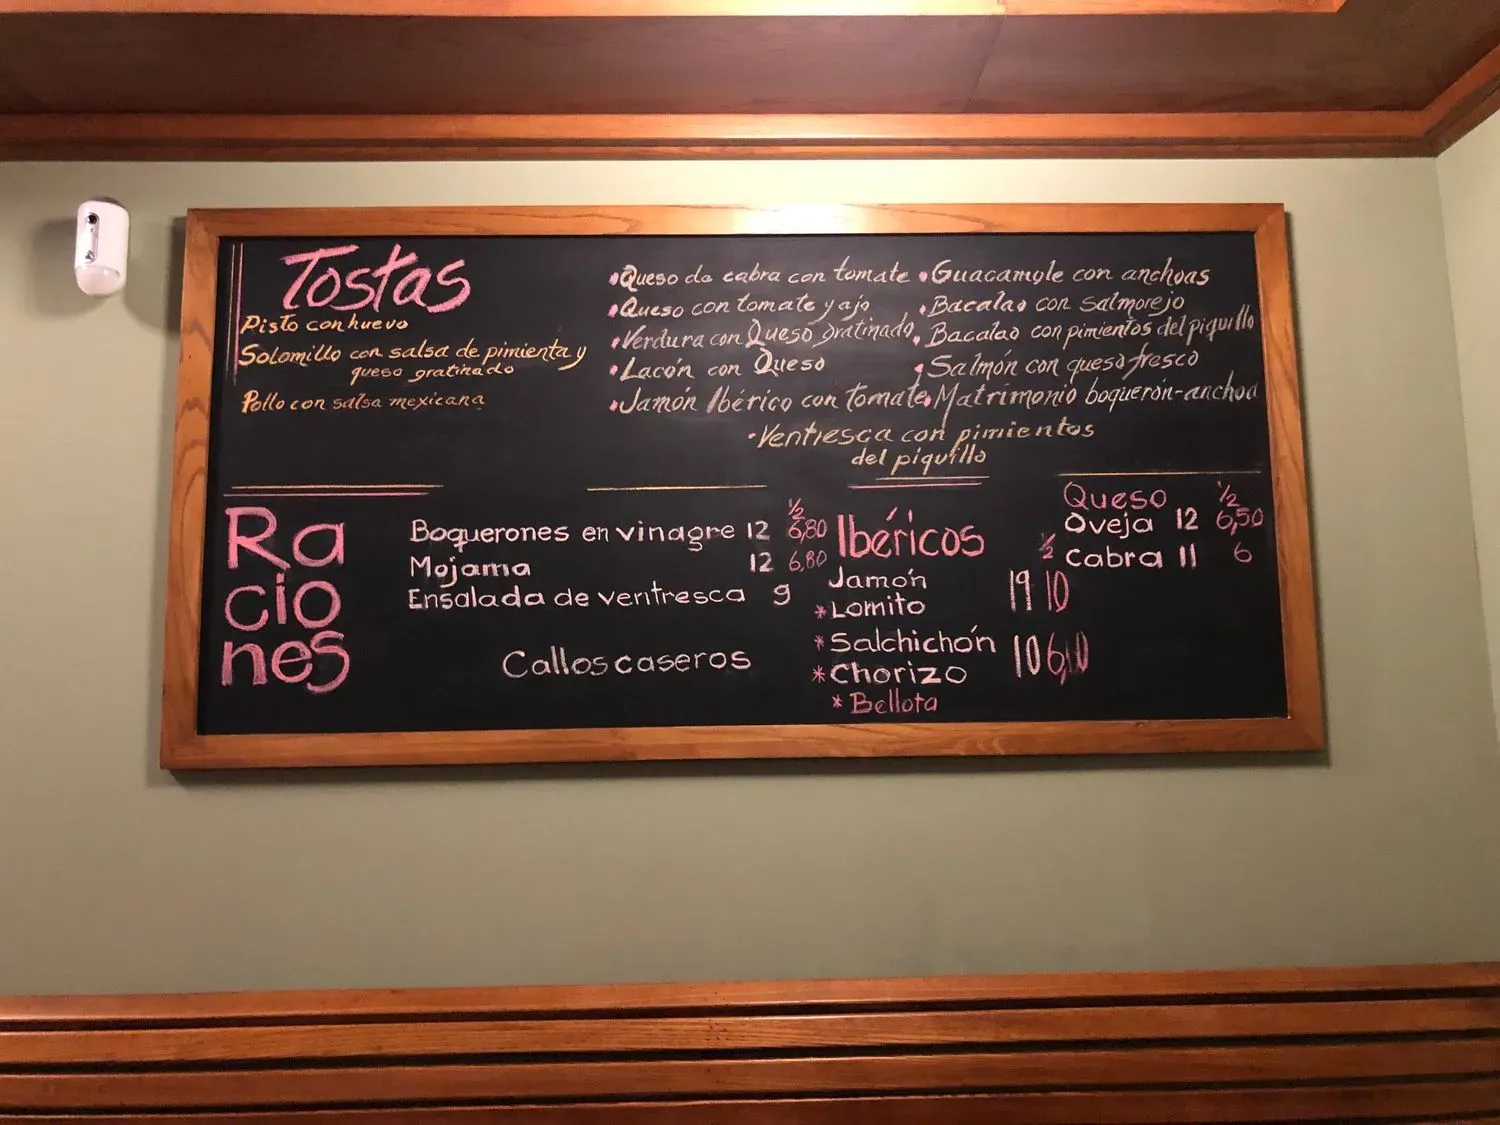 Tostas
Pisto con huevo
Solomillo con salsa de pimienta y
queso gratinado
Pollo con salsa mexicana
•Queso de cabra con tomate
•Queso con tomate y ajo
•Verdura con Queso gratinado
•Lacón con Queso
•Jamón Ibérico con tomate
•Guacamole con anchoas
•Bacalao con salmorejo
•Bacalao con pimientos del piquillo
•Salmón con queso fresco
•Matrimonio boquerón-anchoa
•Ventresca con pimientos
del piquillo
Ra
cio
nes
½
Boquerones en vinagre 12 6,80
Mojama 12 6,80
Ensalada de ventresca 9
Callos caseros
Ibéricos ½
Jamón 19 10
*Lomito
*Salchichón 10 6,10
*Chorizo
*Bellota
Queso ½
Oveja 12 6,50
Cabra 11 6